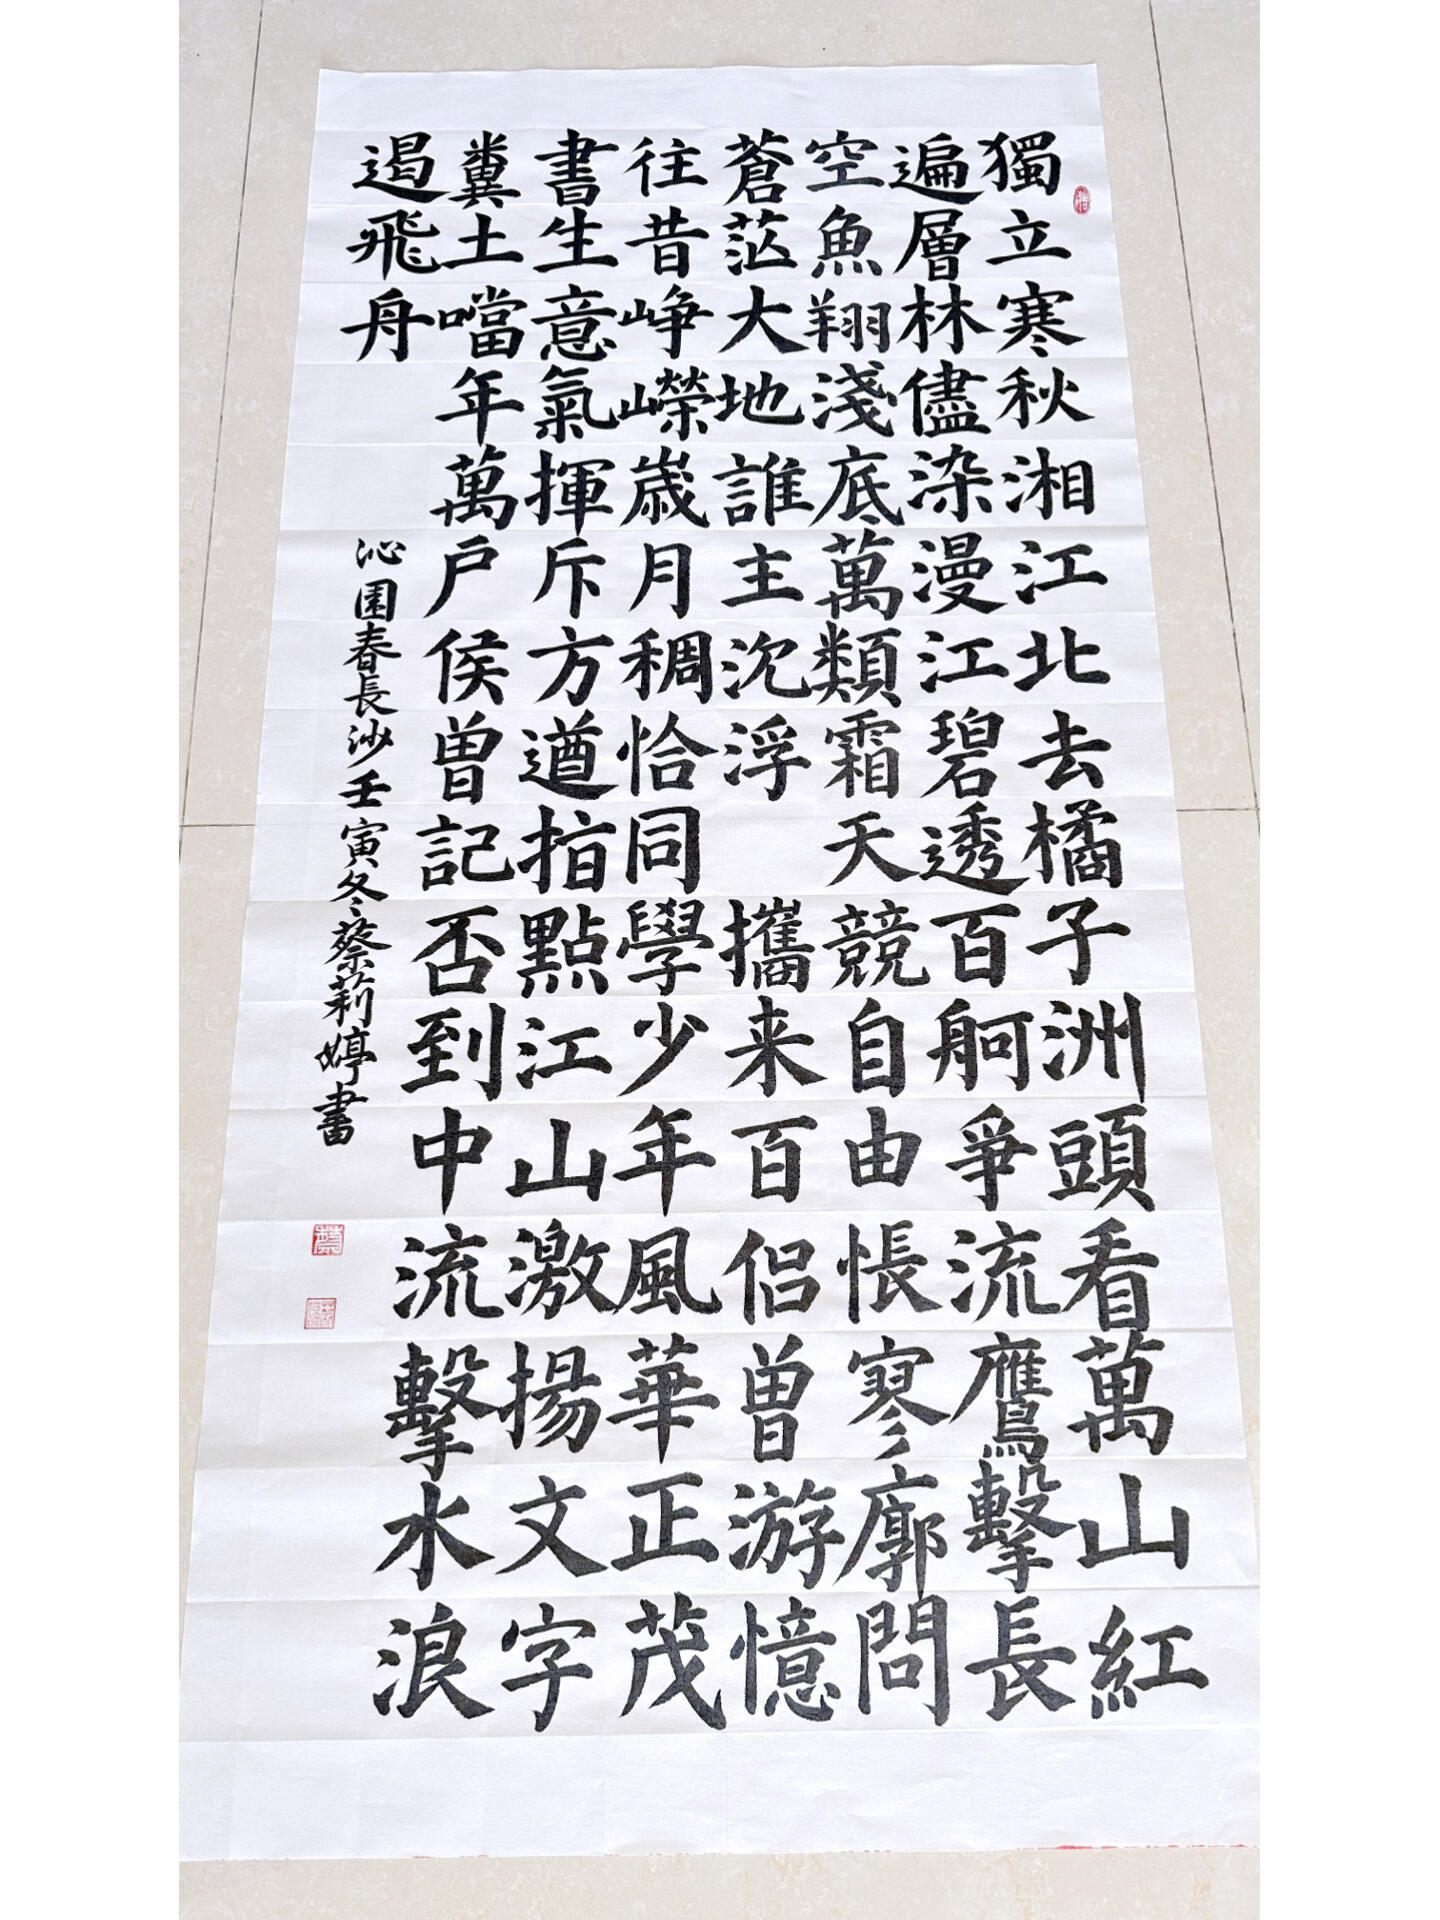 獨立寒秋湘江北去橘子洲頭看萬山紅
遍層林儘染漫江碧透百舸爭流鷹擊長
空魚翔淺底萬類霜天競自由悵寥廓問
蒼茫大地誰主沉浮 攜来百侣曾游憶
往昔峥嶸歲月稠恰同學少年風華正茂
書生意氣揮斥方遒指點江山激揚文字
糞土噹年萬户侯曾記否到中流擊水浪
遏飛舟
沁園春長沙壬寅冬蔡莉婷書